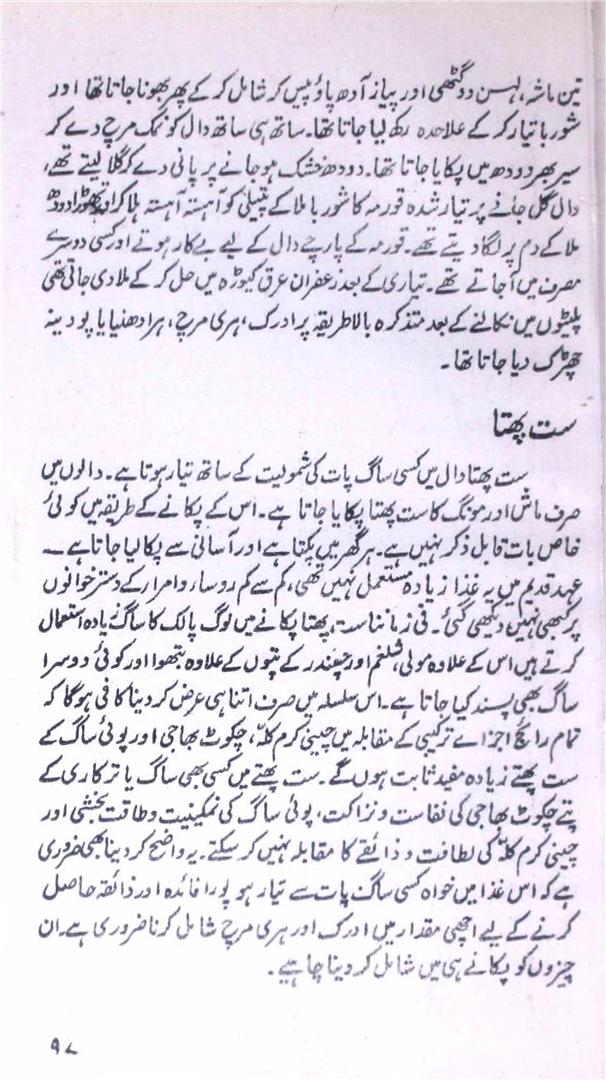 تین ماشہ، لہسن دو گٹھی اور پیاز آدھ پاؤ پیس کر شامل کر کے پھر بھونا جاتا تھا اور
شوربا تیار کر کے علاحدہ رکھ لیا جاتا تھا۔ ساتھ ہی ساتھ دال کو نمک مرچ دے کر
سیر بھر دودھ میں پکایا جاتا تھا۔ دودھ خشک ہو جانے پر پانی دے کر گلا لیتے تھے،
دال گل جانے پر تیار شدہ قورمہ کا شوربا ملا کے پتیلی کو آہستہ آہستہ ہلا کر اور تھوڑا دودھ
ملا کے دم پر لگا دیتے تھے۔ قورمہ کے پارچے دال کے لیے بے کار ہوتے اور کسی دوسرے
مصرف میں آ جاتے تھے۔ تیاری کے بعد زعفران عرق کیوڑہ میں حل کر کے ملا دی جاتی تھی
پلیٹوں میں نکالنے کے بعد متذکرہ بالا طریقہ پر ادرک، ہری مرچ، ہرا دھنیا یا پودینہ
چھڑک دیا جاتا تھا۔
ست پھتا
ست پھتا دال میں کسی ساگ پات کی شمولیت کے ساتھ تیار ہوتا ہے۔ دالوں میں
صرف ماش اور مونگ کا ست پھتا پکایا جاتا ہے۔ اس کے پکانے کے طریقہ میں کوئی
خاص بات قابل ذکر نہیں ہے۔ ہر گھر میں پکتا ہے اور آسانی سے پکا لیا جاتا ہے۔
عہد قدیم میں یہ غذا زیادہ مستعمل نہیں تھی، کم سے کم روسا و امرار کے دسترخوانوں
پر کبھی نہیں دیکھی گئی۔ فی زمانا ست پھتا پکانے میں لوگ پالک کا ساگ زیادہ استعمال
کرتے ہیں اس کے علاوہ مولی، شلغم اور چقندر کے پتوں کے علاوہ بتھوا اور کوئی دوسرا
ساگ بھی پسند کیا جاتا ہے۔ اس سلسلہ میں صرف اتنا ہی عرض کر دینا کافی ہوگا کہ
تمام رائج اجزاے ترکیبی کے مقابلہ میں چینی کرم کلّہ، چکوٹ بھاجی اور پوئی ساگ کے
ست پھتے زیادہ مفید ثابت ہوں گے۔ ست پھتے میں کسی بھی ساگ یا ترکاری کے
پتے چکوٹ بھاجی کی نفاست و نزاکت، پوئی ساگ کی نمکینیت و طاقت بخشی اور
چینی کرم کلّہ کی لطافت و ذائقے کا مقابلہ نہیں کر سکتے۔ یہ واضح کر دینا بھی ضروری
ہے کہ اس غذا میں خواہ کسی ساگ پات سے تیار ہو پورا فائدہ اور ذائقہ حاصل
کرنے کے لیے اچھی مقدار میں ادرک اور ہری مرچ شامل کرنا ضروری ہے۔ ان
چیزوں کو پکانے ہی میں شامل کر دینا چاہیے۔
۹۷